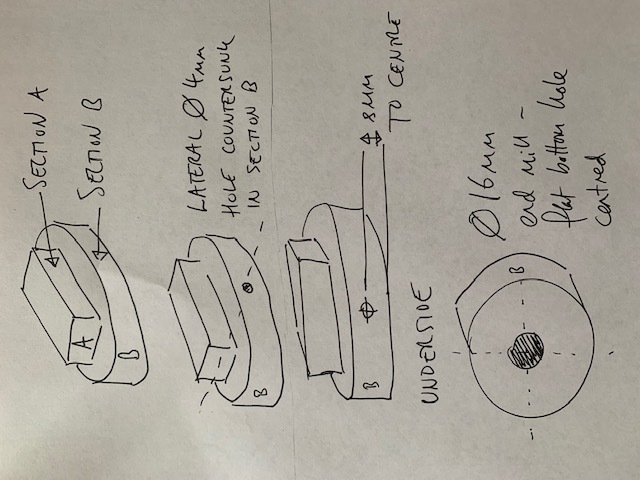 SECTION A
SECTION B
A
B
LATERAL Ø 4mm
HOLE COUNTERSUNK
IN SECTION B
B
8MM
TO CENTRE
B
UNDERSIDE
Ø 16mm
end mill -
flat bottom hole
centred
B